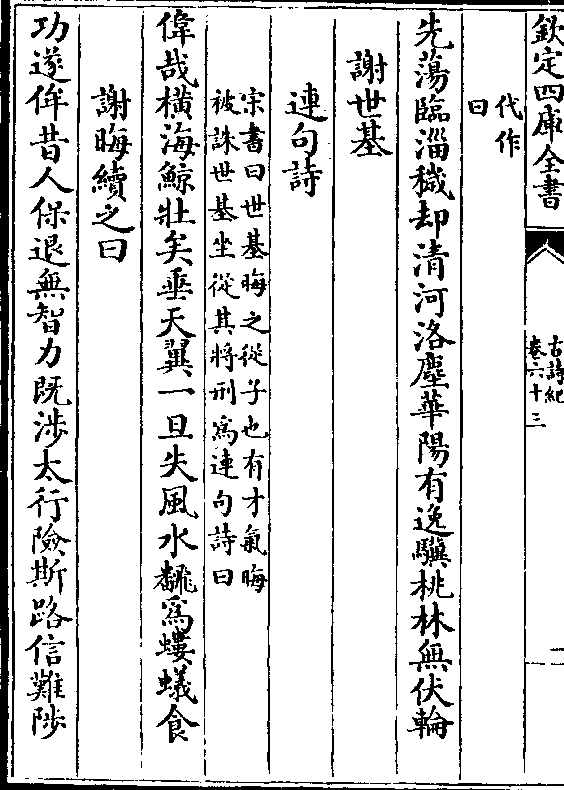 欽定四庫全書
古詩紀
卷六十三
二
代作
曰
先蕩臨淄穢却清河洛塵華陽有逸驥桃林無伏輪
謝世基
連句詩
宋書曰世基晦之從子也有才氣晦
被誅世基坐從其將刑為連句詩曰
偉哉橫海鯨壯矣垂天翼一旦失風水飜為螻蟻食
謝晦續之曰
功遂侔昔人保退無智力既涉太行險斯路信難陟